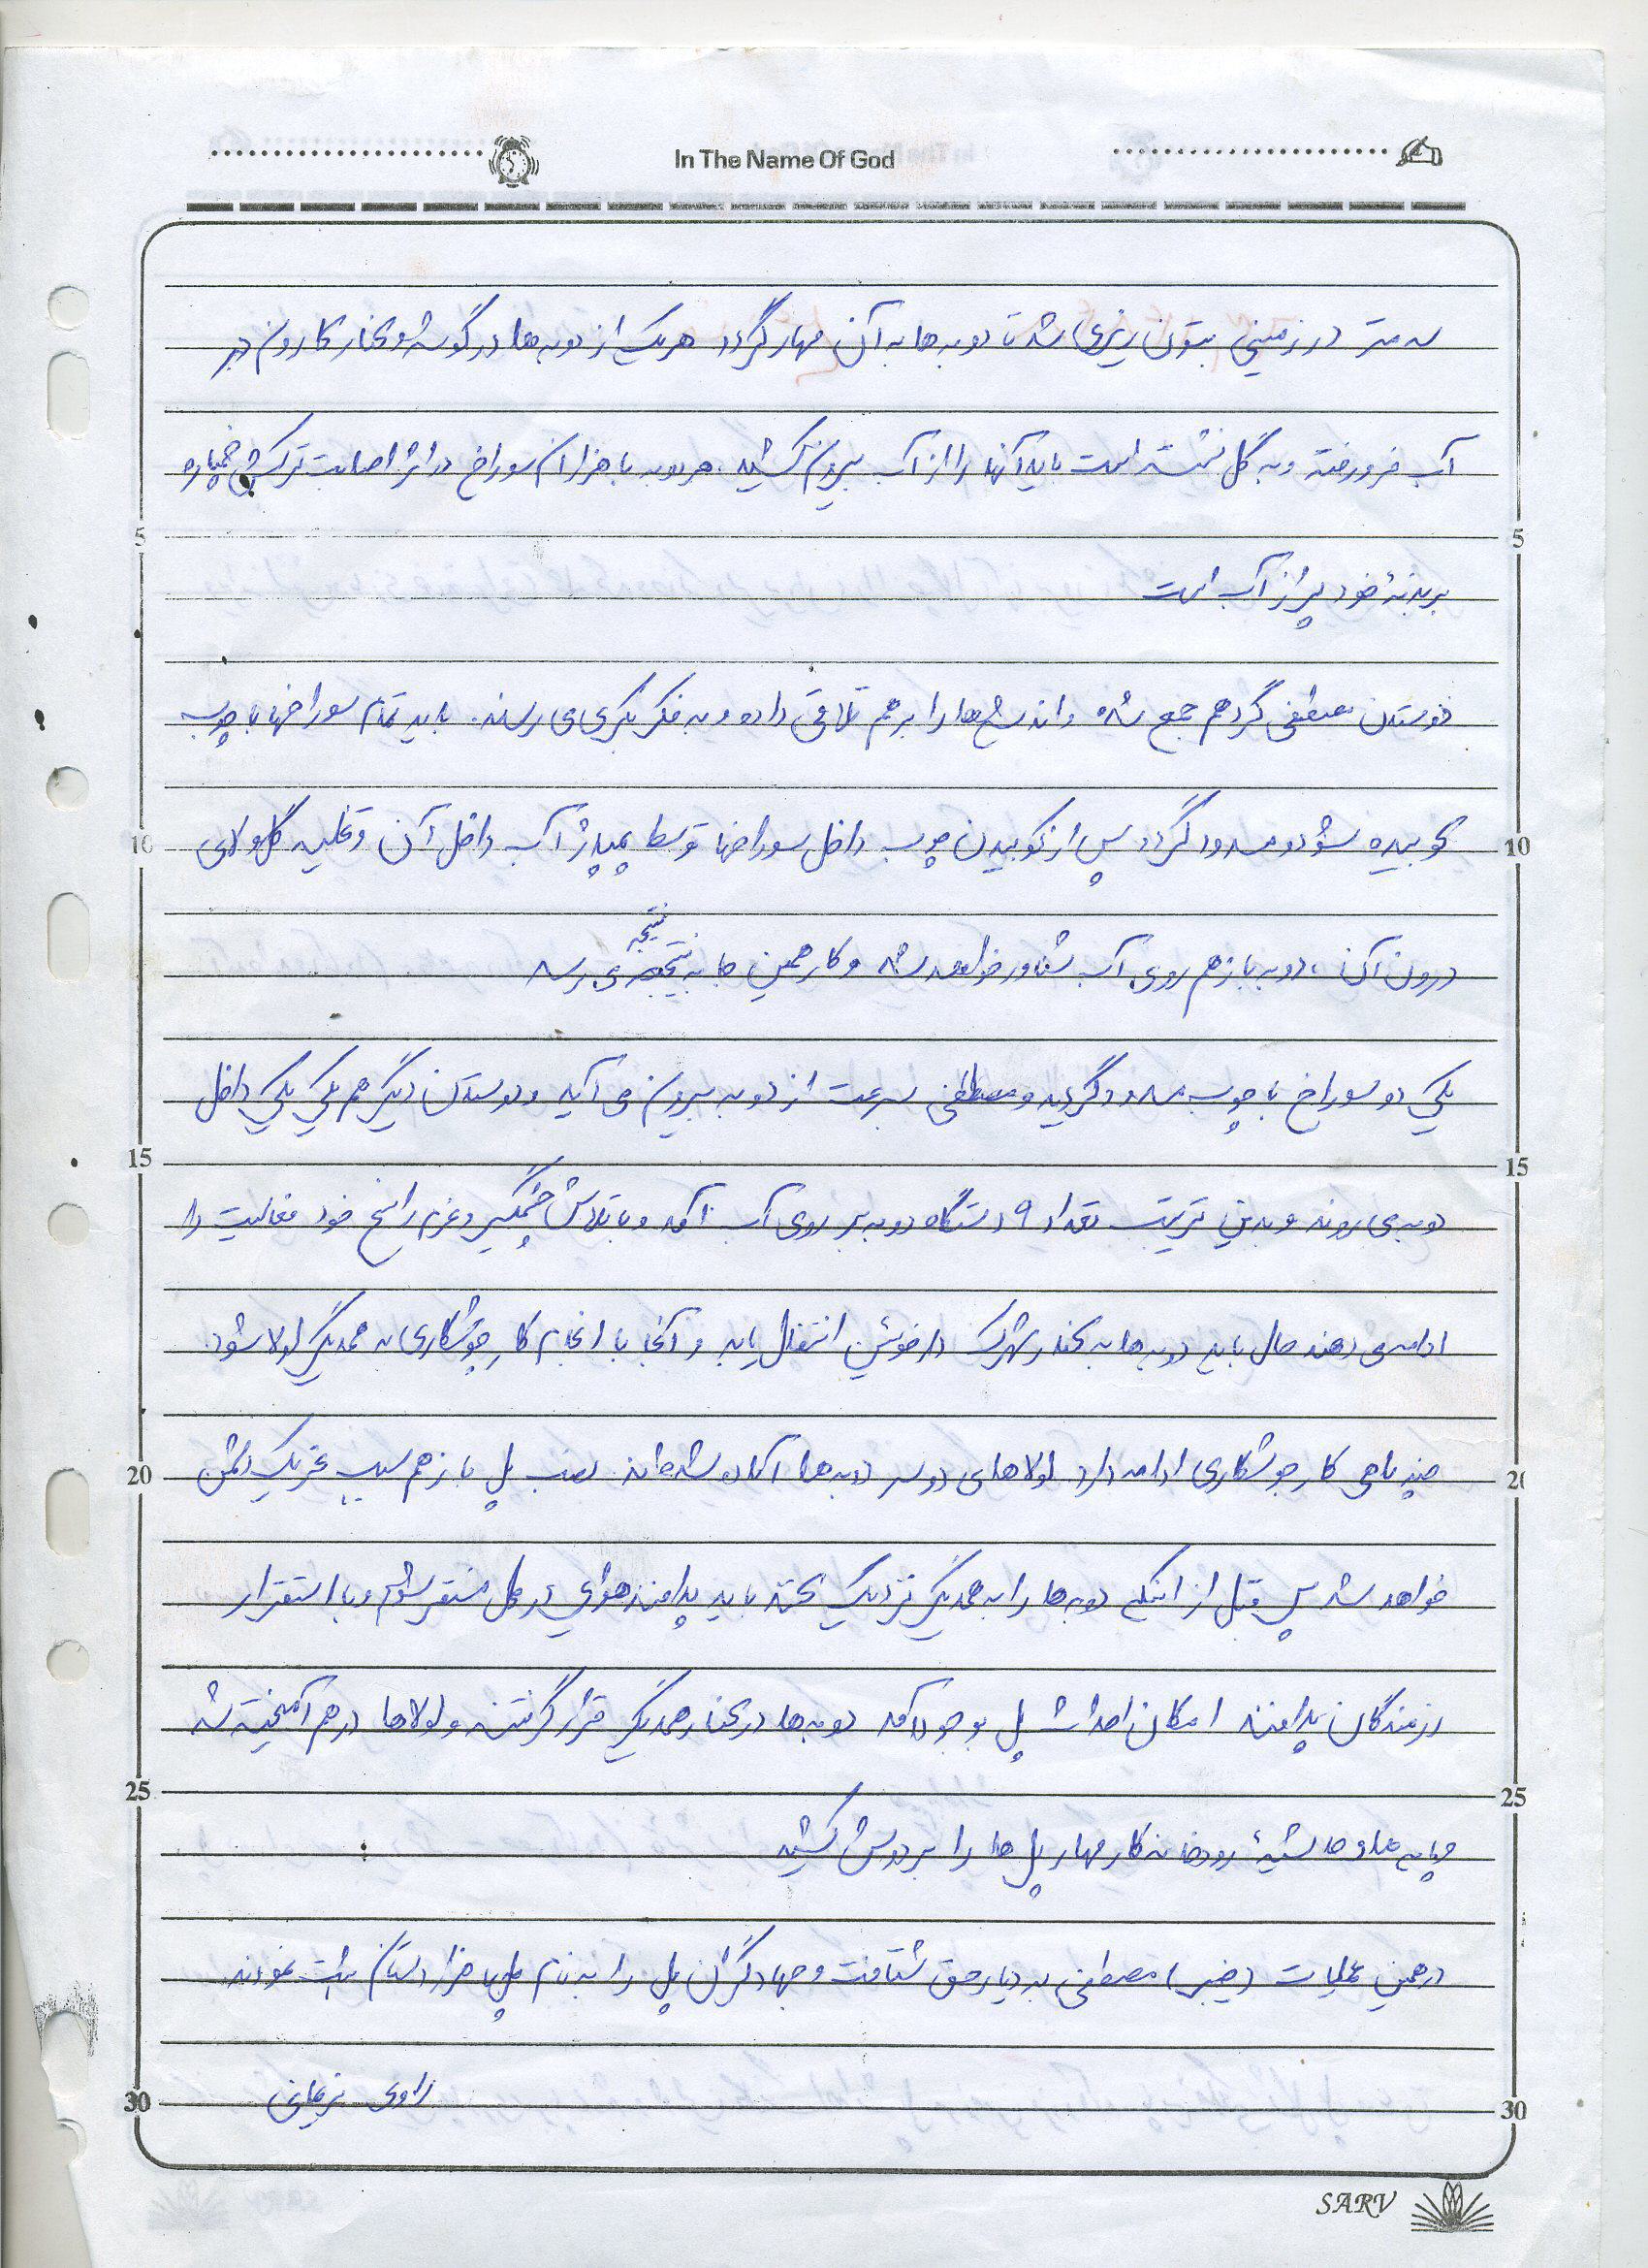 In The Name Of God
سه متر در زمینی بتون ریزی شد تا دوبه ها به آن مهار گردد هر یک از دوبه ها در گوشه و کنار کارون در
آب فرو رفته و به گل نشسته است باید آنها را از آب بیرون کشید، هر دوبه با هزاران سوراخ در اثر اصابت ترکش خمپاره
بر بدنۀ خود پر از آب است
دوستان مصطفی گرد هم جمع شده و اندیشه ها را بر هم تلاقی داده و به فکر بکری می رسند. باید تمام سوراخها با چوب
کوبیده شود و مسدود گردد پس از کوبیدن چوب داخل سوراخها توسط پمپاژ آب داخل آن و تخلیه گل و لای
درون آن، دوبه باز هم روی آب شناور خواهد شد و کار همین جا به نتیجه می رسد
نتیجه
یکی دو سوراخ با چوب مسدود گردید و مصطفی بسرعت از دوبه بیرون می آید و دوستان دیگر هم یکی یکی داخل
دوبه می روند و بدین ترتیب تعداد ۹ دستگاه دوبه بر روی آب آمد و با تلاش چشمگیر و عزم راسخ خود فعالیت را
ادامه می دهند حال باید دوبه ها به کنار شهرک دارخوئین انتقال یابد و آنجا با انجام کار جوشکاری به همدیگر لولا شود.
چند ماهی کار جوشکاری ادامه دارد لولاهای دو سر دوبه ها آماده شده اند نصب پل باز هم سبب تحریک دشمن
خواهد شد پس قبل از اینکه دوبه ها را به همدیگر نزدیک کنند باید پدافند هوایی در محل مستقر شود و با استقرار
رزمندگان پدافند امکان احداث پل بوجود آمد دوبه ها در کنار همدیگر قرار گرفتند و لولاها در هم آمیخته شد
رودخانه کار مهار پل ها را بر دوش کشید
در همین عملیات (خیبر) مصطفی به دیار حق شتافت و جهادگران پل را به نام پل هزار دستان ثبت نمودند
راوی نریمانی
5
5
10
10
15
15
20
20
25
25
30
30
SARV